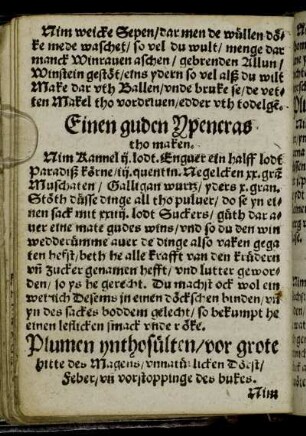 Nim weicke Sepen/dar men de wüllen dö-
ke mede waschet/ so vel du wult/ menge dar
manck Winrauen aschen/ gebrenden Allun/
Winstein gestöt/ eins ydern so vel alß du wilt
Make dar vth Ballen/vnde bruke se/de vet-
ten Makel tho vordriuen/edder vth todelgē.
Einen guden Ypencras
tho maken.
Nim Kannel ij. lodt. Enguer ein halff lodt
Paradiß körne/iij.quentin. Negelcken xx. grā
Muschaten/ Galligan wurtz/ yders x. gran.
Stöth düsse dinge all tho puluer/ do se yn ei-
nen sack mit xxiiij. lodt Suckers/ güth dar a-
uer eine mate gudes wins/vnd so du den win
wedderümme auer de dinge also vaken gega
ten hefst/beth he alle krafft van den krüdern
vñ Zucker genamen hefft/ vnd lutter gewor-
den/ so ys he gerecht. Du machst ock wol ein
wenich Desems in einen döckschen binden/vñ
yn des sackes boddem gelecht/ so bekumpt he
einen lefflicken smack vnde röke.
Plumen ynthosülten/vor grote
hitte des Magens/vnnatürlicken Dörst/
Feber/vñ vorstoppinge des bukes.
Nim